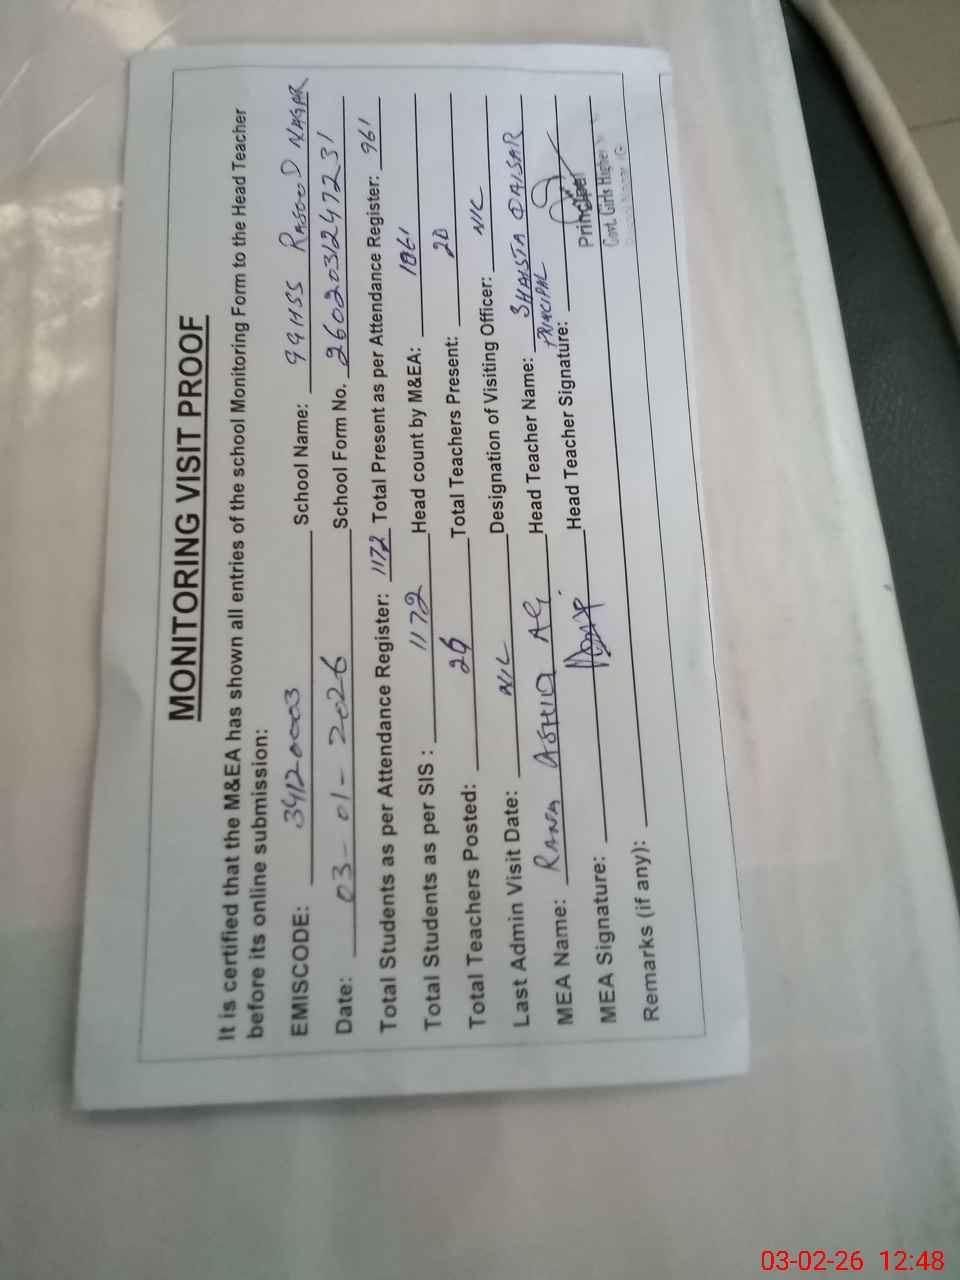 MONITORING VISIT PROOF
It is certified that the M&EA has shown all entries of the school Monitoring Form to the Head Teacher
before its online submission:
EMISCODE: 34120003 School Name: GGHSS RASOOL NAGAR
Date: 03-01-2026 School Form No. 2602031247231
Total Students as per Attendance Register: 1172 Total Present as per Attendance Register: 961
Total Students as per SIS : 1172 Head count by M&EA: 1061
Total Teachers Posted: 26 Total Teachers Present: 20
Last Admin Visit Date: N/C Designation of Visiting Officer: N/C
MEA Name: RANA Head Teacher Name: SHAISTA QAISAR
PRINCIPAL
MEA Signature: Head Teacher Signature:
Principal
Govt. Girls Higher
Remarks (if any):
03-02-26 12:48